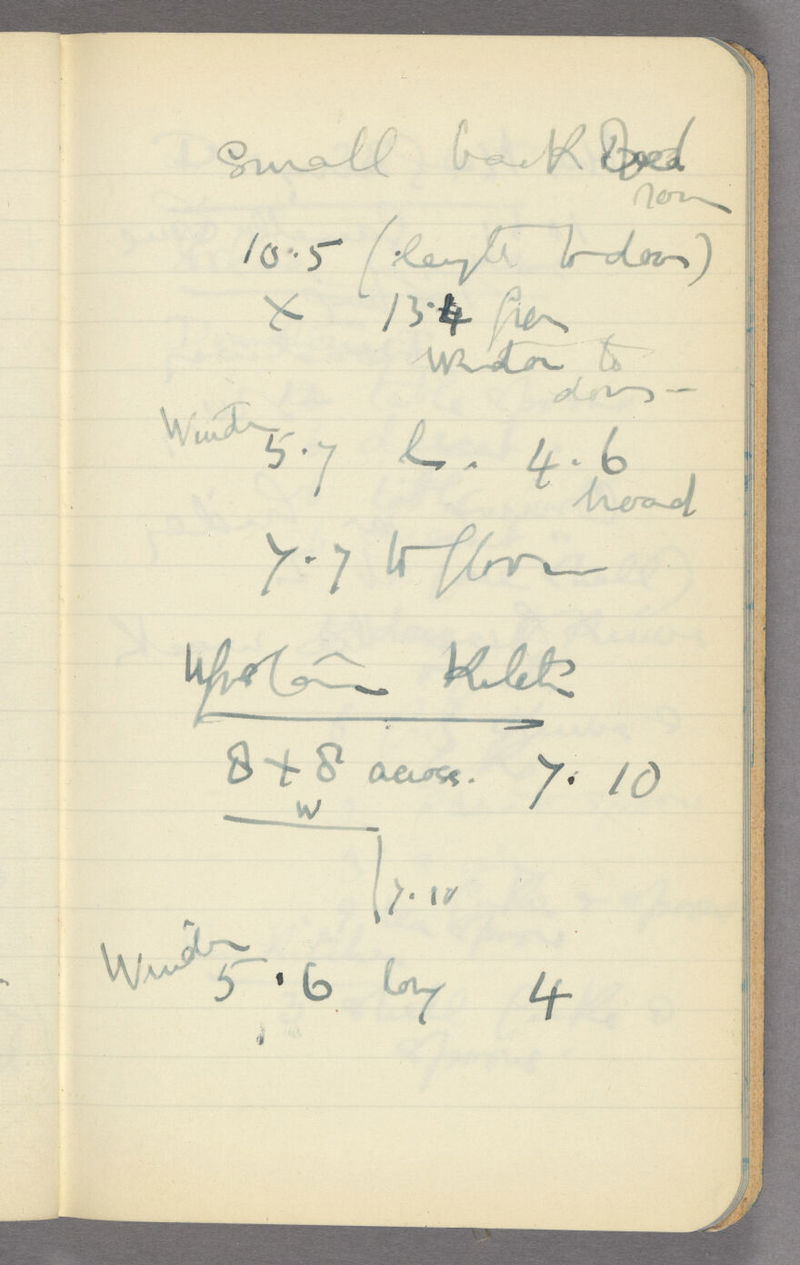 Small back Bed
room
10.5 (length to door)
X 13.4 from
Window to
door -
Window
5.7 L. 4.6
broad
7.7 to floor
Upstairs
8 + 8 across. 7. 10
W
7. 10
Window
5.6 long 4